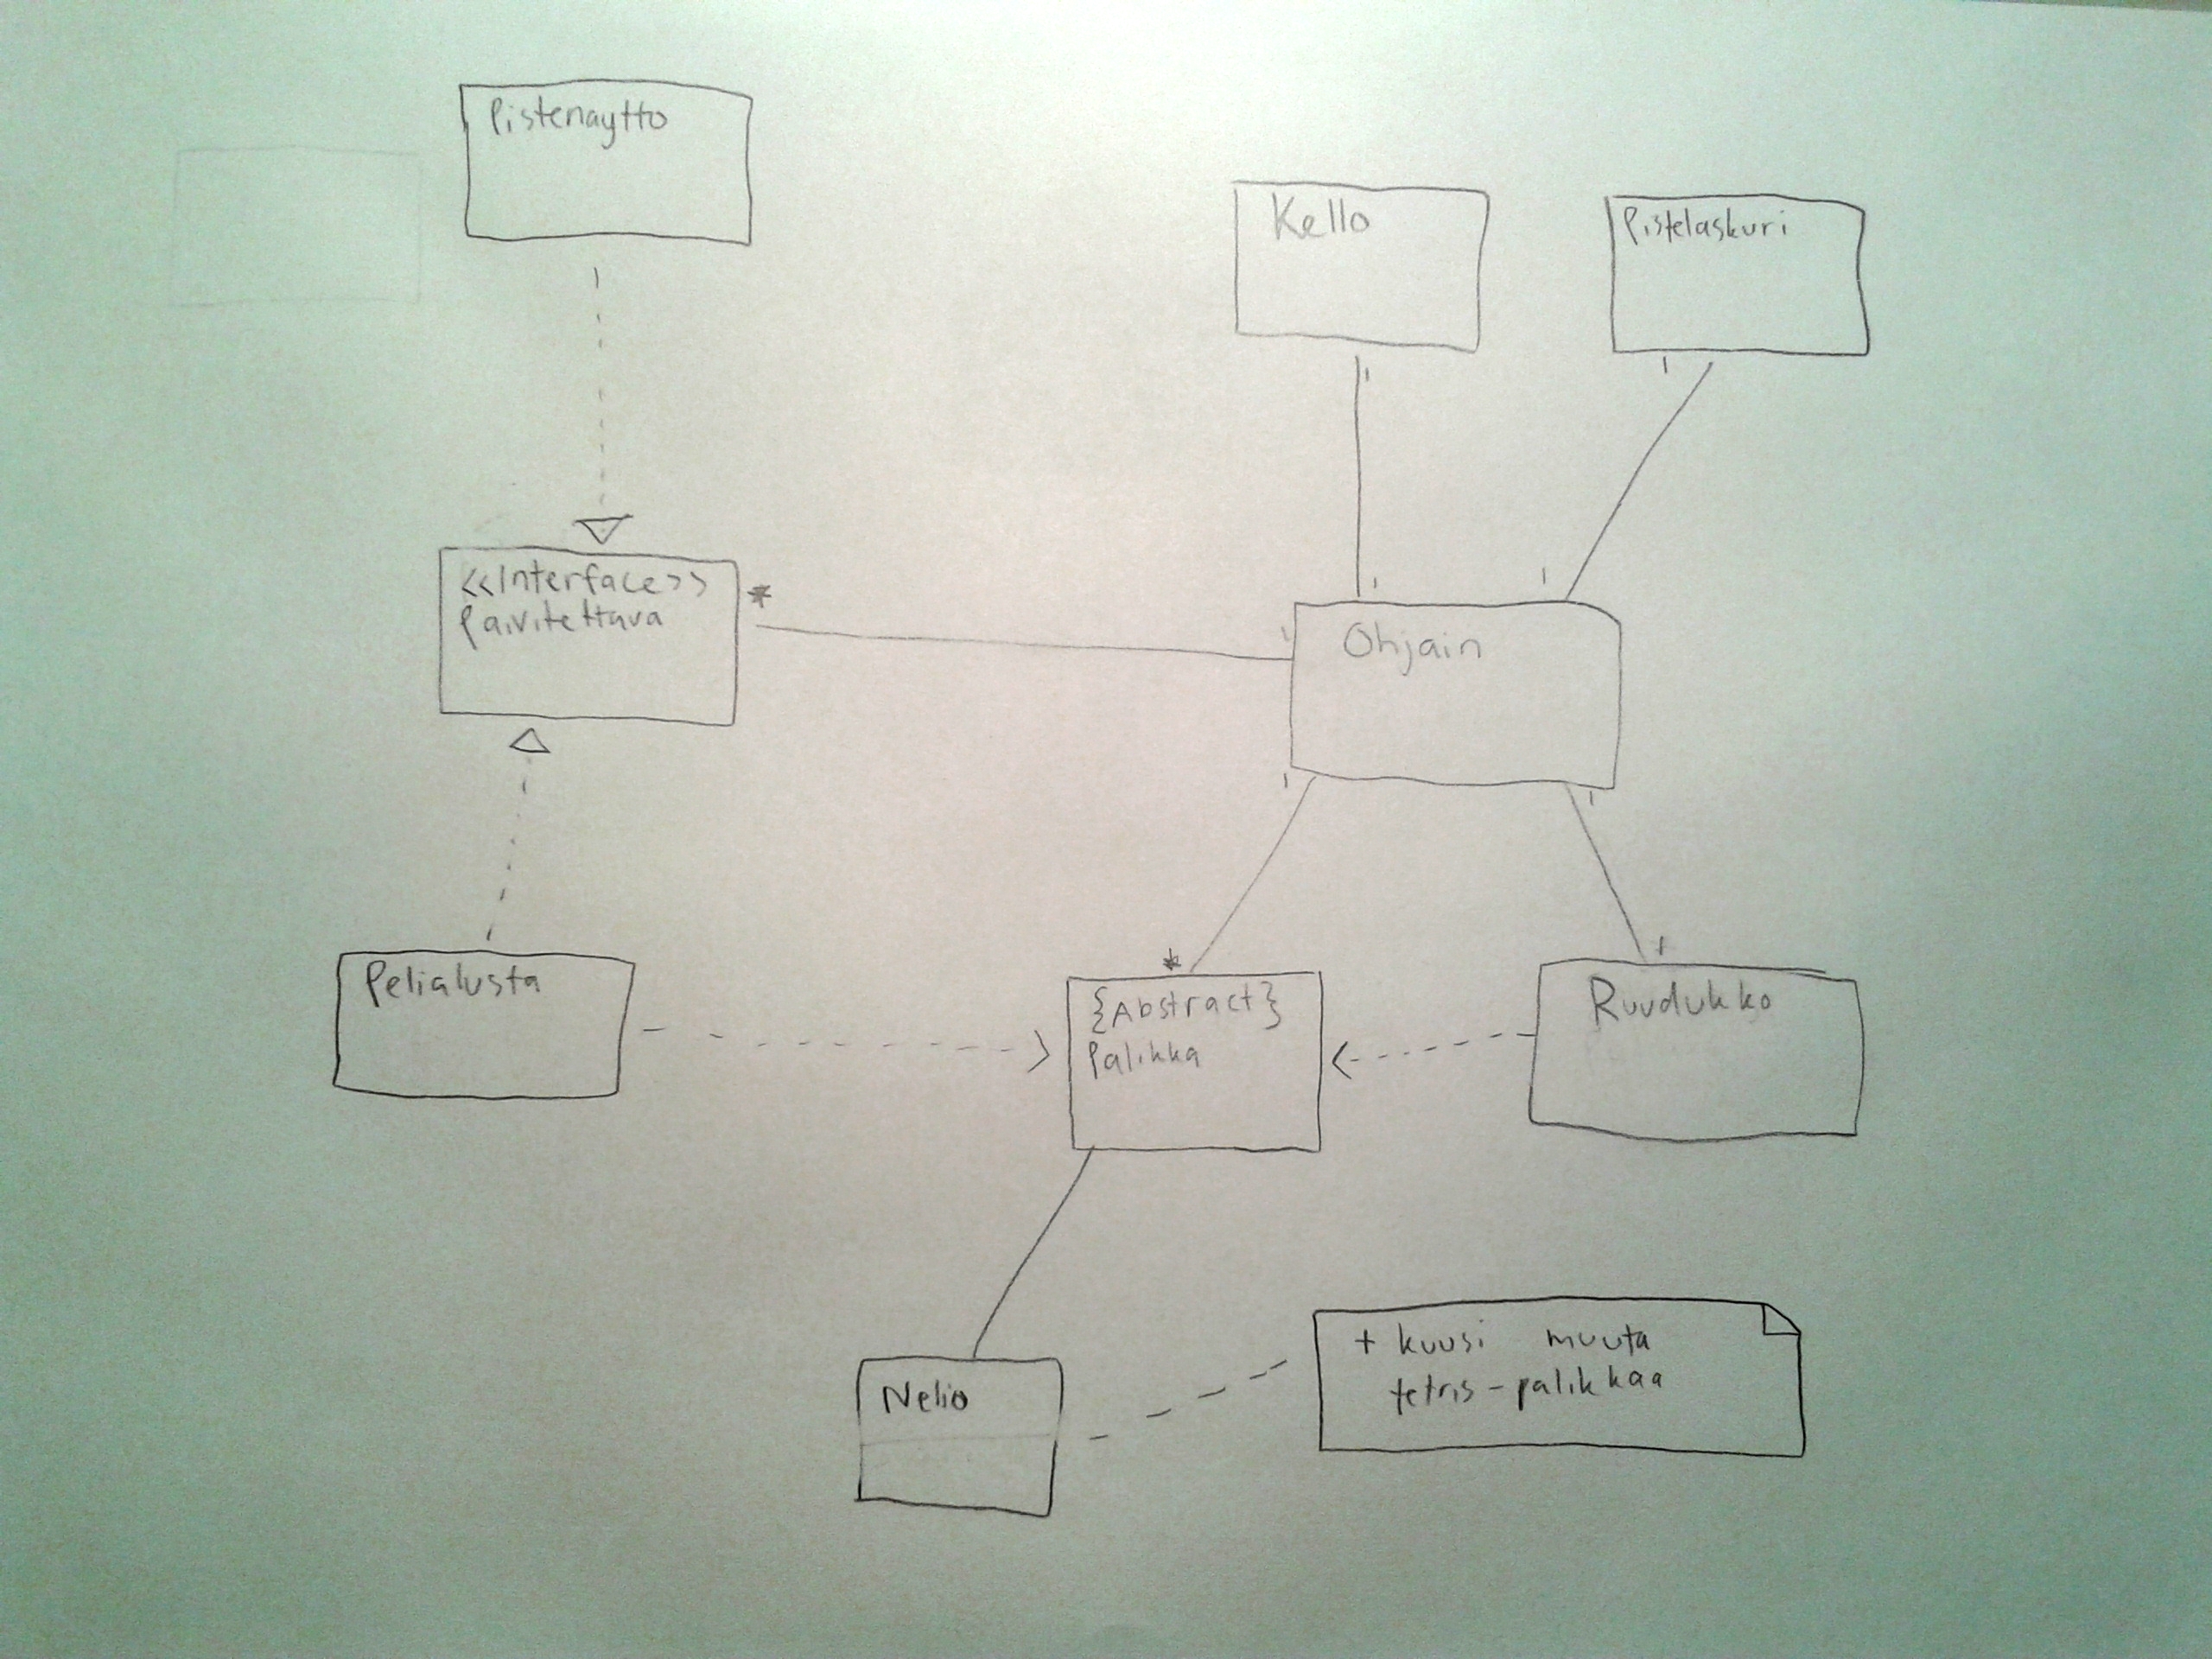 Pistenaytto
Kello
Pistelaskuri
1
1
1
1
<<Interface>>
Paivitettava
*
1
Ohjain
1
1
*
1
Pelialusta
{Abstract}
Palikka
Ruudukko
Nelio
+ kuusi muuta
tetris-palikkaa